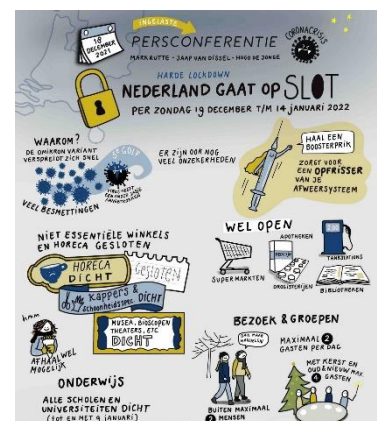 18
DECEMBER
2021
INGELASTE
PERSCONFERENTIE
MARK RUTTE - JAAP VAN DISSEL - HUGO DE JONGE
CORONACRISIS
HARDE LOCKDOWN
NEDERLAND GAAT OP SLOT
PER ZONDAG 19 DECEMBER T/M 14 JANUARI 2022
WAAROM?
DE OMIKRON VARIANT
VERSPREIDT ZICH SNEL
5e GOLF
VEEL BESMETTINGEN
ER ZIJN OOK NOG
VEEL ONZEKERHEDEN
HAAL EEN
BOOSTERPRIK
ZORGT VOOR
EEN OPFRISSER
VAN JE
AFWEERSYSTEEM
NIET ESSENTIËLE WINKELS
EN HORECA GESLOTEN
HORECA
DICHT
GESLOTEN
KAPPERS &
SCHOONHEIDSSPEC.
DICHT
MUSEA, BIOSCOPEN
THEATERS, ETC
DICHT
hmm
AFHAAL WEL
MOGELIJK
WEL OPEN
APOTHEKEN
SUPERMARKTEN
DROGISTERIJEN
TANKSTATIONS
BIBLIOTHEKEN
BEZOEK & GROEPEN
MAXIMAAL 2
GASTEN PER DAG
MET KERST EN
OUD & NIEUW MAX
4 GASTEN
BUITEN MAXIMAAL
2 MENSEN
ONDERWIJS
ALLE SCHOLEN EN
UNIVERSITEITEN DICHT
(TOT EN MET 9 JANUARI)